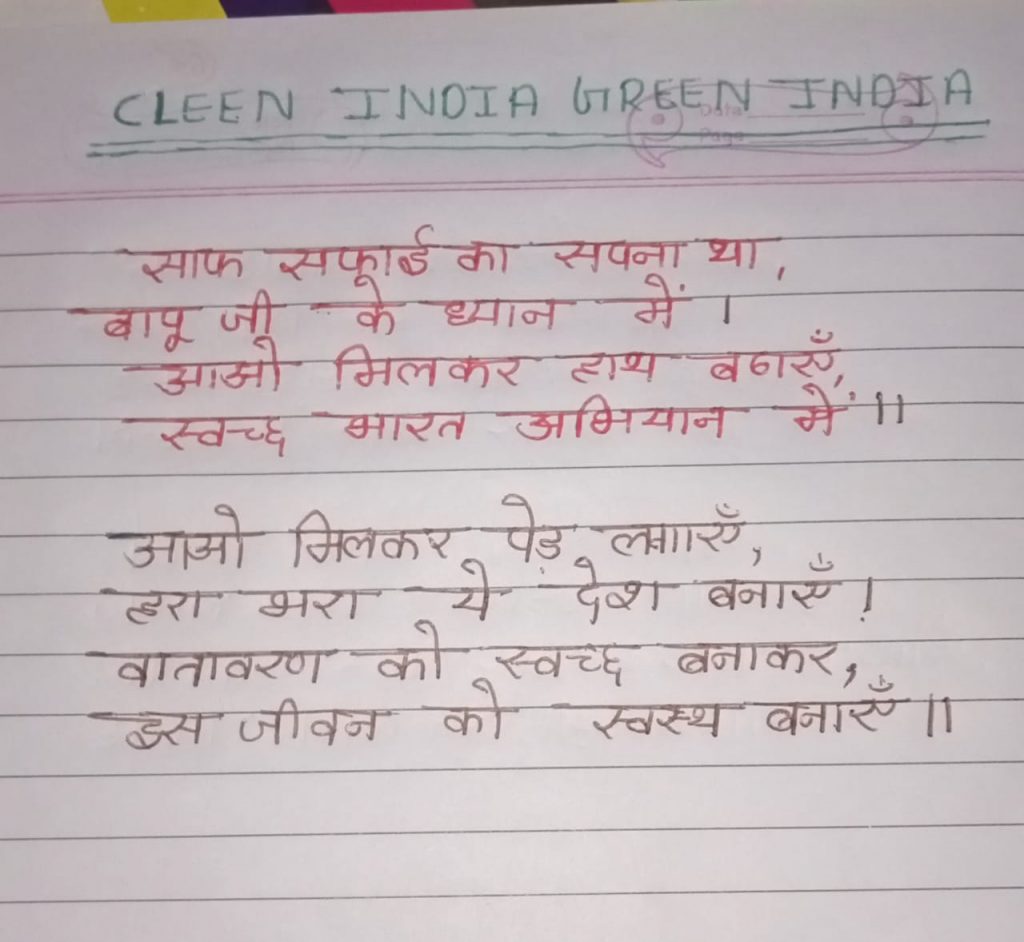 CLEEN INDIA GREEN INDIA
Date
Page
साफ सफाई का सपना था,
बापू जी के ध्यान में ।
आओ मिलकर हाथ बटाएँ,
स्वच्छ भारत अभियान में ॥
आओ मिलकर पेड़ लगाएँ,
हरा भरा ये देश बनाएँ ।
वातावरण को स्वच्छ बनाकर,
इस जीवन को स्वस्थ बनाएँ ॥